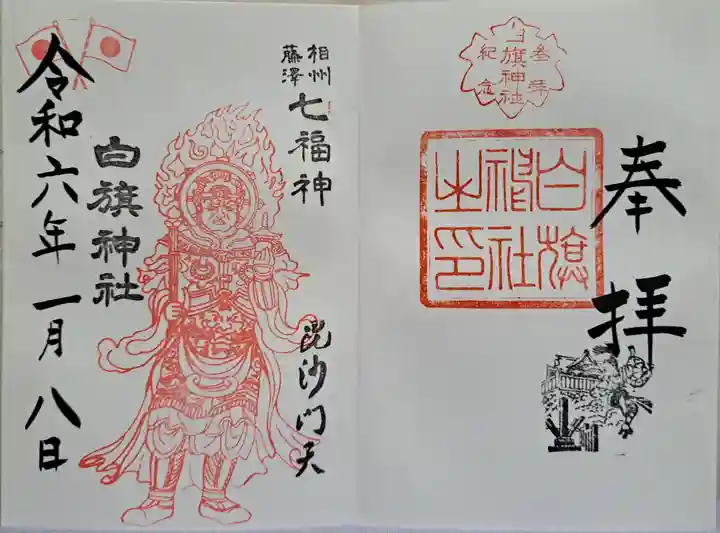 参拝
白旗神社
紀念
奉拝
白旗
神社
之印
相州
藤澤
七福神
毘沙門天
白旗神社
令和六年一月八日